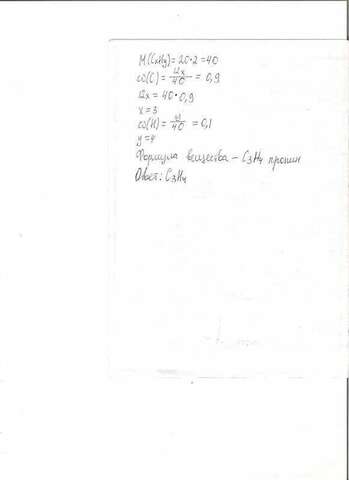 M(CxHy)=20·2=40
ω(C)=12x/40=0,9
12x=40·0,9
x=3
ω(H)=y/40=0,1
y=4
Формула вещества – C₃H₄ пропин
Ответ: C₃H₄